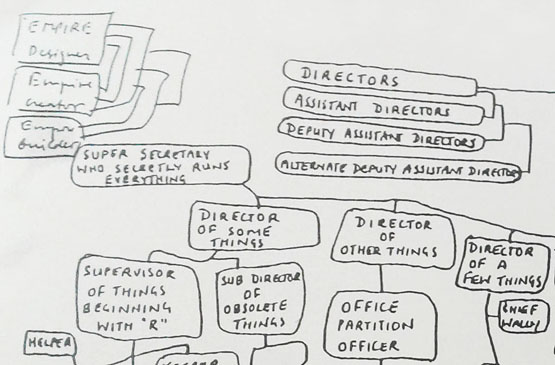 EMPIRE
Designer
Empire
Creator
Empire
builder
SUPER SECRETARY
WHO SECRETLY RUNS
EVERYTHING
DIRECTORS
ASSISTANT DIRECTORS
DEPUTY ASSISTANT DIRECTORS
ALTERNATE DEPUTY ASSISTANT DIRECTORS
DIRECTOR
OF SOME
THINGS
DIRECTOR
OF
OTHER THINGS
DIRECTOR
OF A
FEW THINGS
SUPERVISOR
OF THINGS
BEGINNING
WITH "R"
SUB DIRECTOR
OF
OBSOLETE
THINGS
OFFICE
PARTITION
OFFICER
CHIEF
WALLY
HELPER